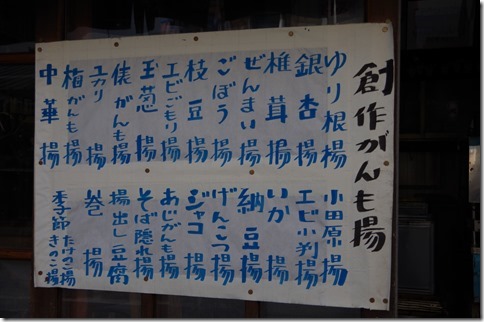 創作がんも揚
ゆり根揚
銀杏揚
椎茸揚
ぜんまい揚
ごぼう揚
枝豆揚
エビごもり揚
玉葱揚
俵がんも揚
ユカリ揚
梅がんも揚
中華揚
小田原揚
エビ小判揚
いか揚
納豆揚
げんこつ揚
ジャコ揚
あじがんも揚
そば隠れ揚
揚出し豆腐
巻揚
季節 たけのこ揚
きのこ揚